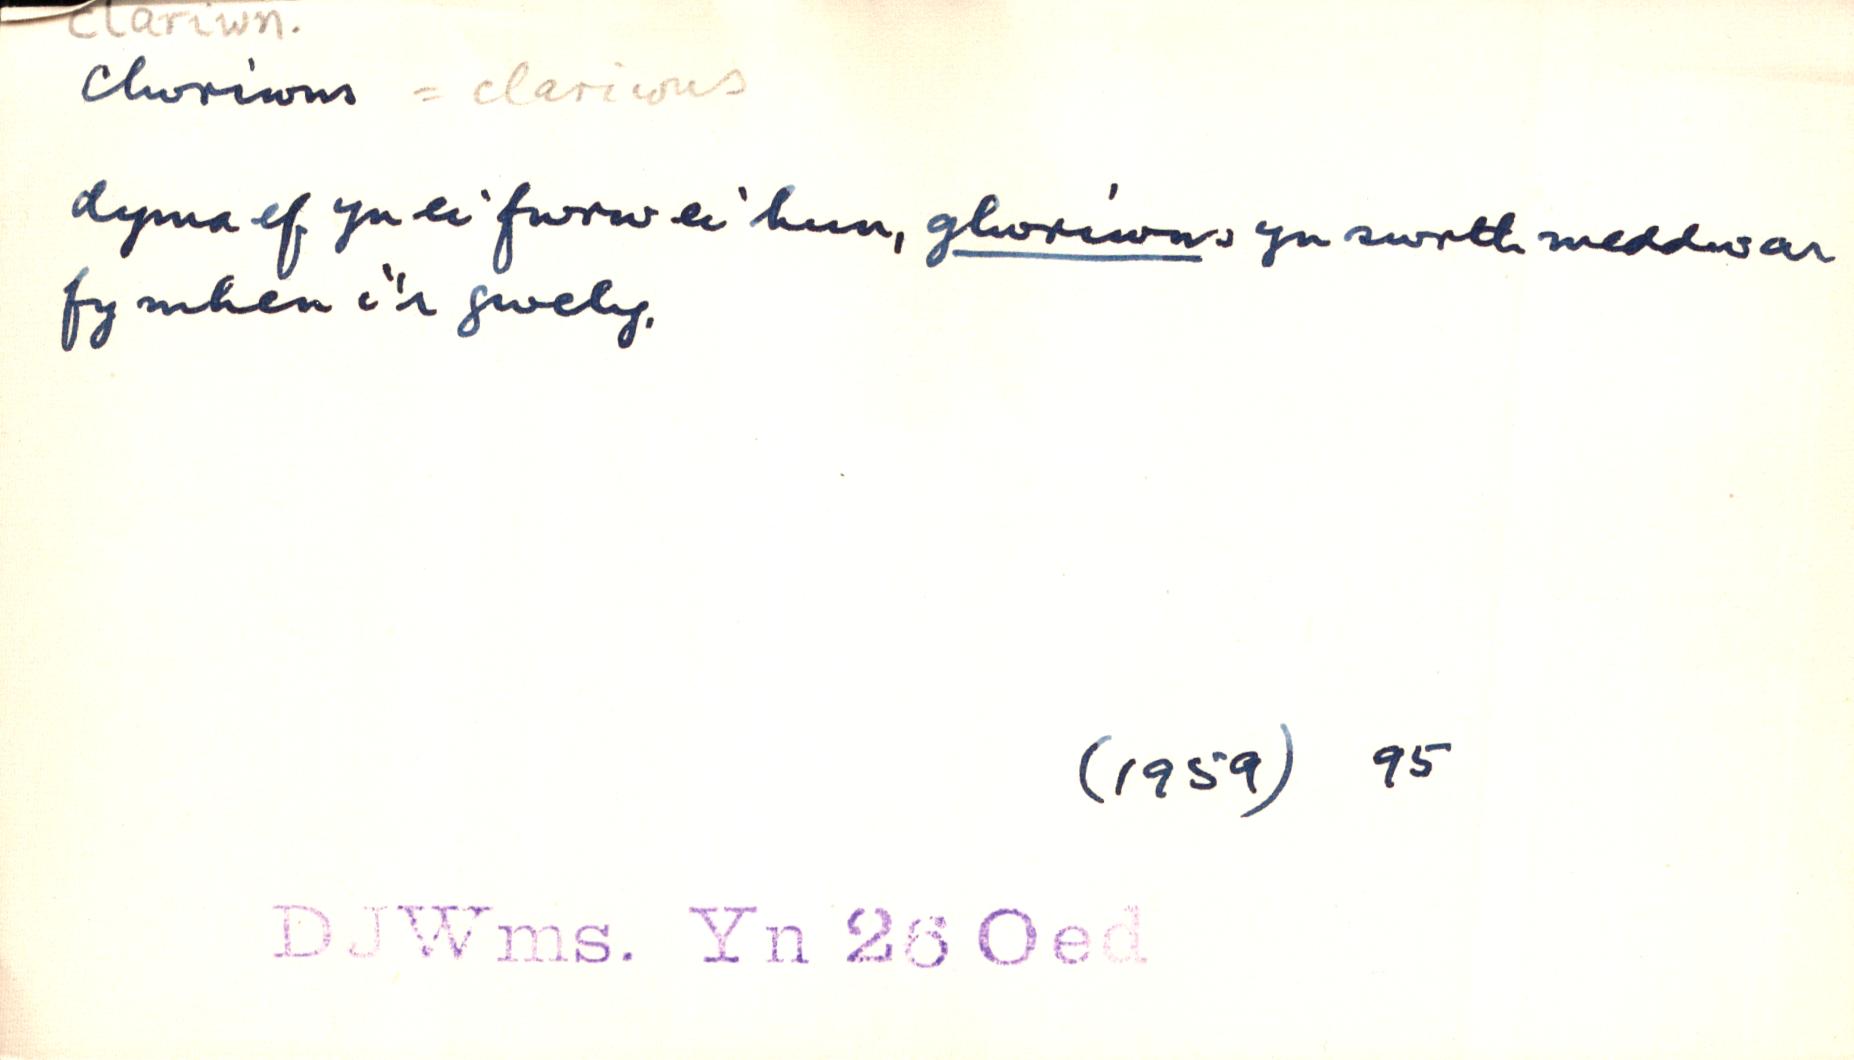 clariwn.
clwriwns = clariwns
dyma ef yn ei fwrw ei hun, glwriwns yn swrth meddw ar
fy mhen i'r gwely.
(1959) 95
DJWms. Yn 26 Oed